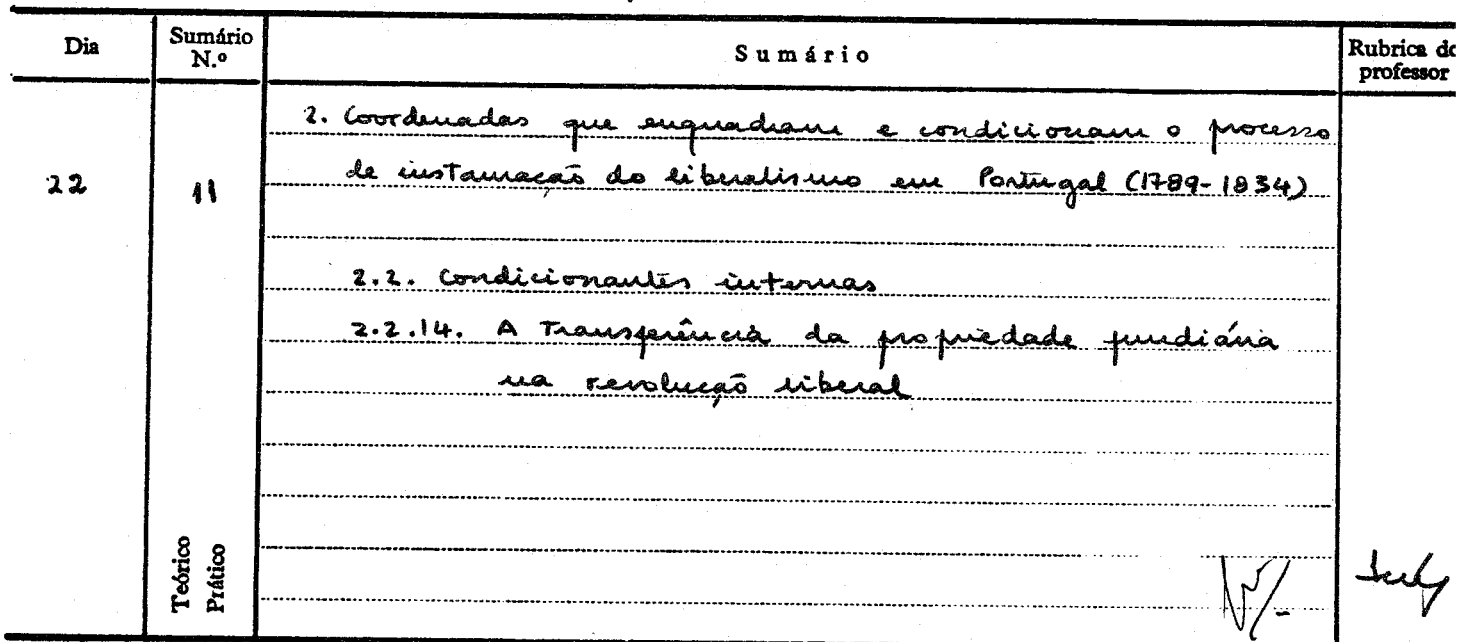 Dia
Sumário
N.º
Sumário
Rubrica do
professor
2. Coordenadas que enquadram e condicionam o processo
22
11
de instauração do liberalismo em Portugal (1789-1834)
2.2. Condicionantes internas
2.2.14. A Transferência da propriedade fundiária
na revolução liberal
Teórico
Prático